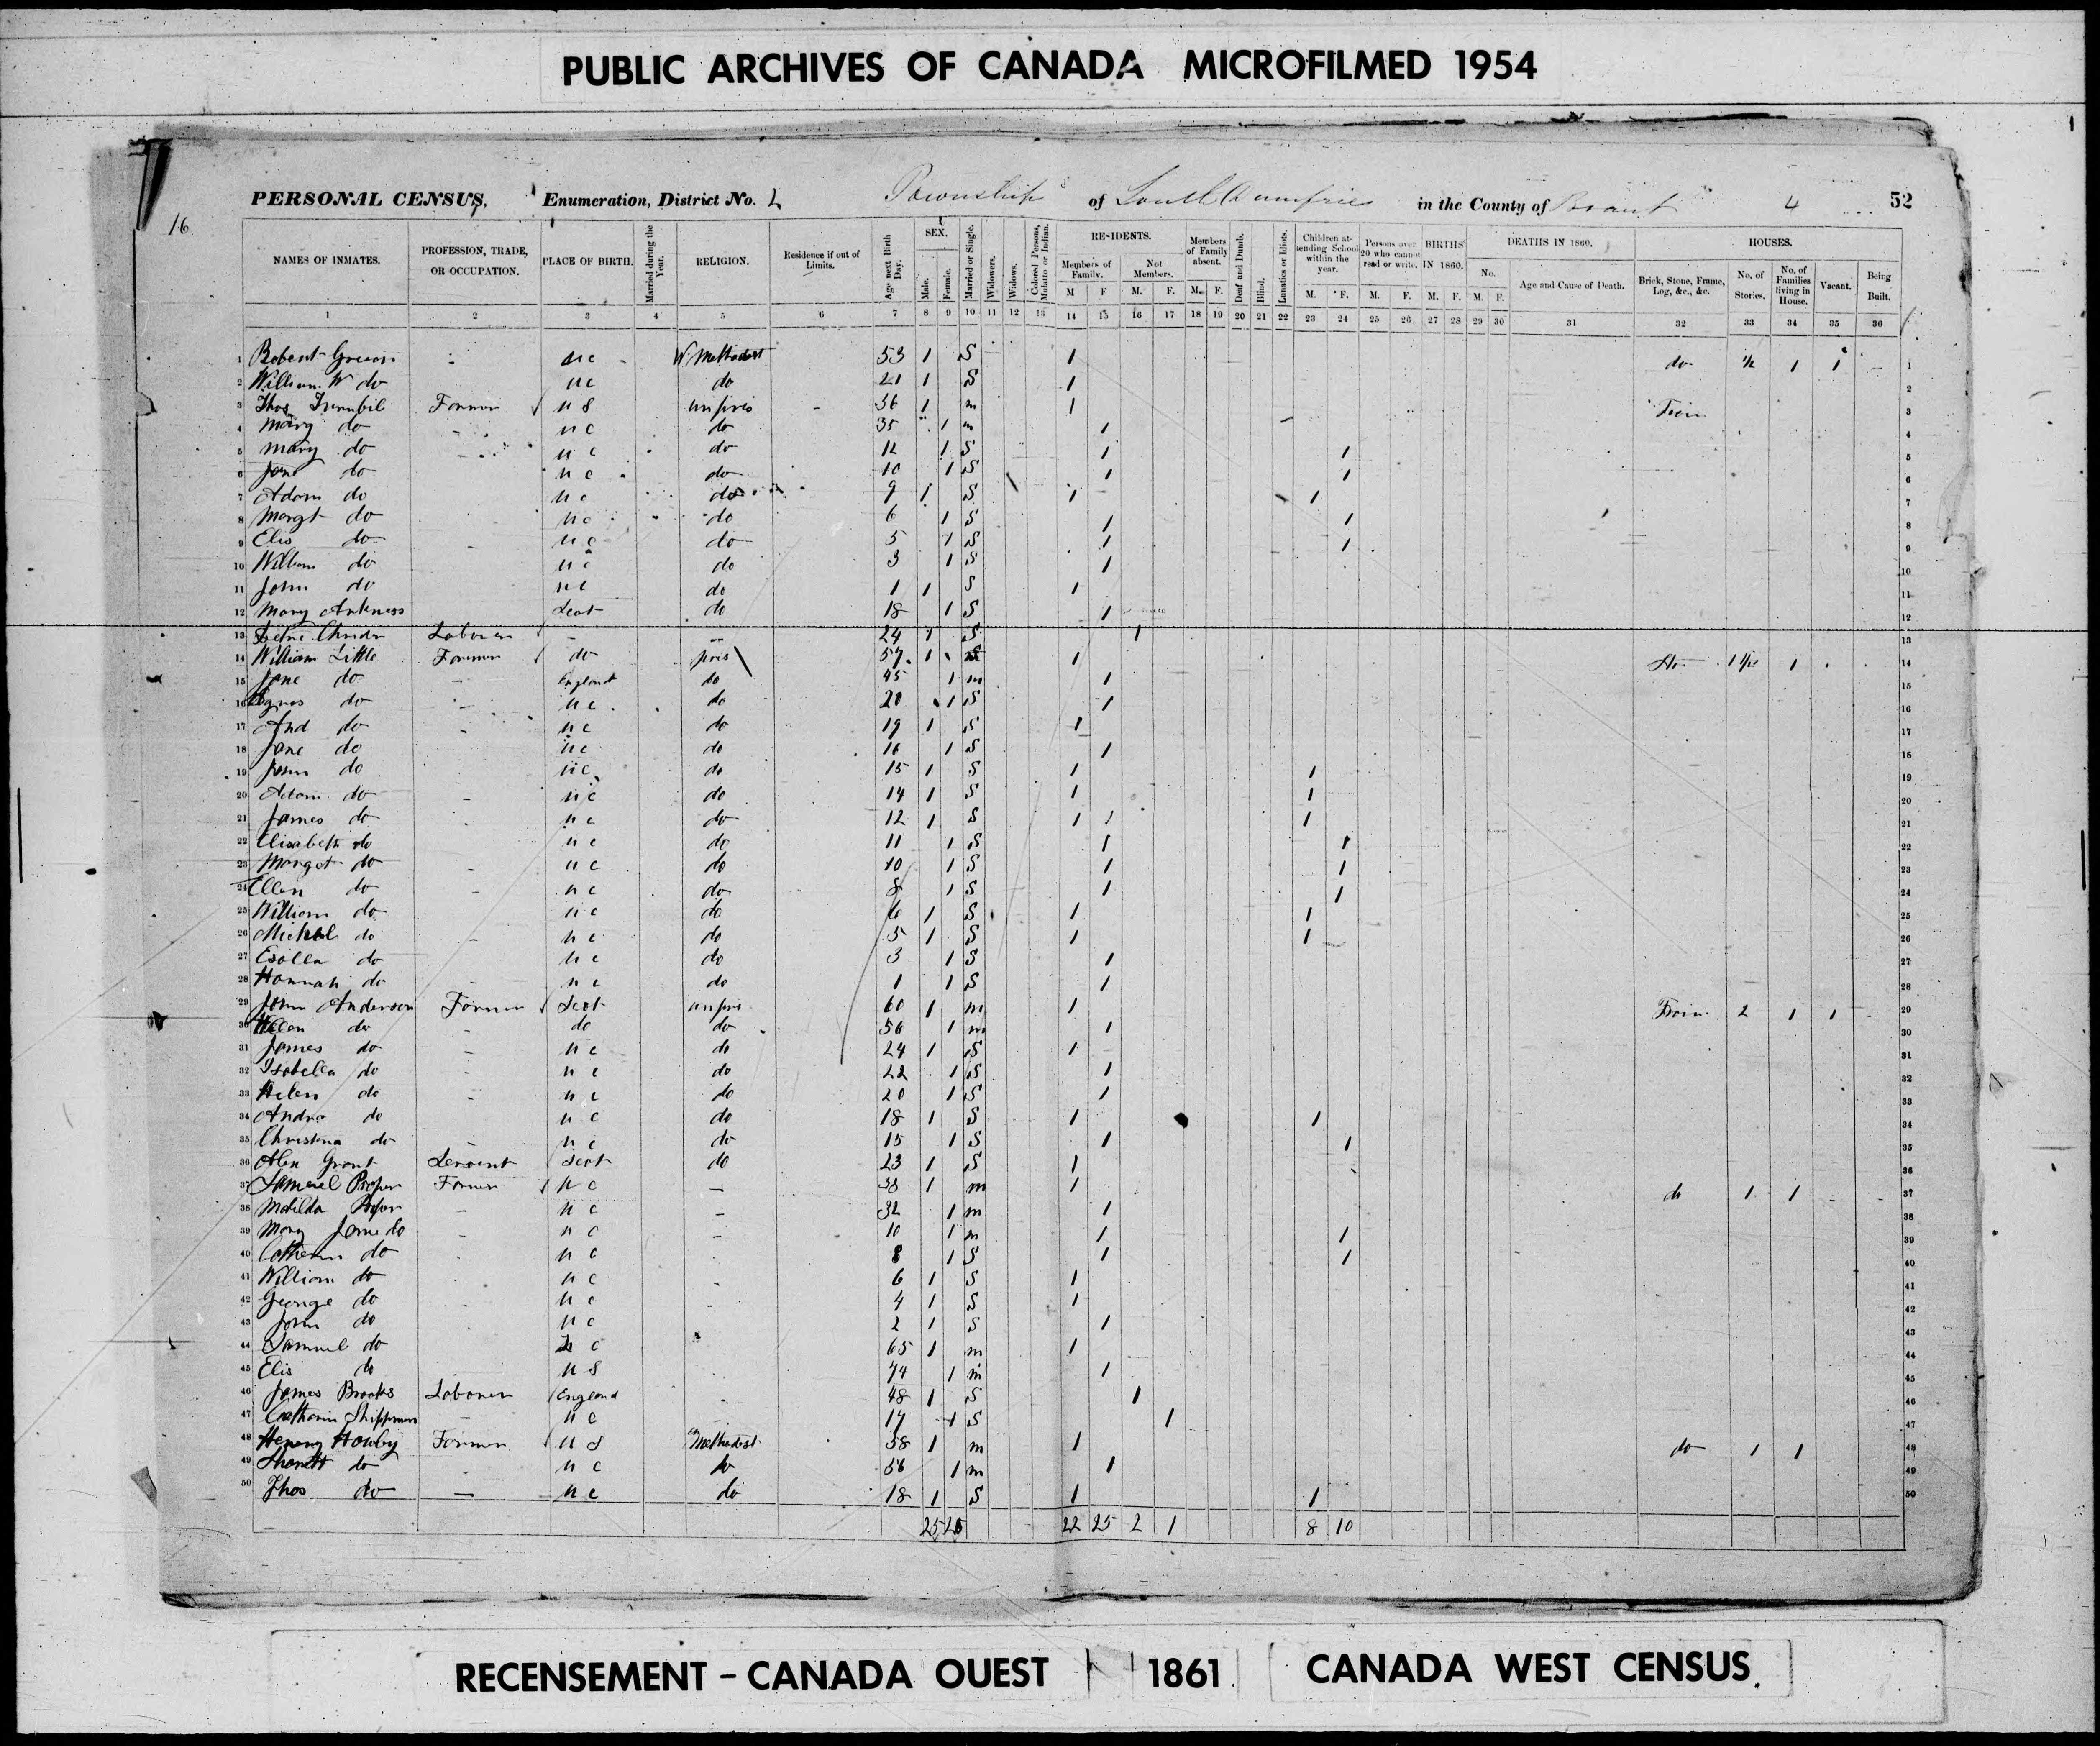 PUBLIC ARCHIVES OF CANADA MICROFILMED 1954
16
PERSONAL CENSUS, Enumeration, District No. 2 Township of South Dumfries in the County of Brant 4 52
NAMES OF INMATES. PROFESSION, TRADE, OR OCCUPATION. PLACE OF BIRTH. Married during the Year. RELIGION. Residence if out of Limits. Age next Birth Day. SEX. Male. Female. Married or Single. Widowers. Widows. Colored Persons, Mulatto or Indian. RESIDENTS. Members of Family. M F Not Members. M. F. Members of Family absent. M. F. Deaf and Dumb. Blind. Lunatics or Idiots. Children attending School within the year. M. F. Persons over 20 who cannot read or write. M. F. BIRTHS IN 1860. M. F. DEATHS IN 1860. No. M. F. Age and Cause of Death. HOUSES. Brick, Stone, Frame, Log, &c., &c. No. of Stories. No. of Families living in House. Vacant. Being Built.
1 2 3 4 5 6 7 8 9 10 11 12 13 14 15 16 17 18 19 20 21 22 23 24 25 26 27 28 29 30 31 32 33 34 35 36
1 Robert - u c W. Methodist 53 1 S 1 do ½ 1 1 1
2 William W do u c do 21 1 S 1 2
3 Thos Farmer u S un pres 36 1 m 1 3
4 Mary do u c do 35 1 m 1 4
5 Mary do u c do 12 1 S 1 1 5
6 Jane do u c do 10 1 S 1 1 6
7 Adam do u c do 9 1 S 1 1 7
8 Margt do u c do 6 1 S 1 1 8
9 Elis do u c do 5 1 S 1 1 9
10 William do u c do 3 1 S 1 10
11 John do u c do 1 1 S 1 11
12 Mary Scot do 18 1 S 1 12
13 Laborer - - 24 1 S 1 13
14 William Little Farmer do pres 57 1 1 1 14
15 Jane do - England do 45 1 m 1 15
16 Agnes do u c do 20 1 S 1 16
17 And do u c do 19 1 S 1 17
18 Jane do u c do 16 1 S 1 18
19 John do u c do 15 1 S 1 1 19
20 Adam do - u c do 14 1 S 1 1 20
21 James do u c do 12 1 S 1 1 1 21
22 Elisabeth do u c do 11 1 S 1 1 22
23 Margot do - u c do 10 1 S 1 1 23
24 Ellen do - u c do 8 1 S 1 1 24
25 William do u c do 6 1 S 1 1 25
26 Michel do - u c do 5 1 S 1 1 26
27 do u c do 3 1 S 1 27
28 Hannah do - u c do 1 1 S 1 28
29 John Anderson Farmer Scot un pres 60 1 m 1 2 1 1 29
30 Helen do - do do 56 1 m 1 30
31 James do - u c do 24 1 S 1 31
32 Isabella do - u c do 22 1 S 1 32
33 Helen do - u c do 20 1 S 1 33
34 do u c do 18 1 S 1 1 34
35 Christena do - u c do 15 1 S 1 1 35
36 Alex Grant Servent Scot do 23 1 S 1 36
37 Samuel Farmer u c - 38 1 m 1 do 1 1 37
38 Matilda - u c - 32 1 m 1 38
39 Mary Jane do - u c - 10 1 m 1 1 39
40 Catherin do u c 8 1 S 1 1 40
41 William do u c 6 1 S 1 41
42 George do u c 4 1 S 1 42
43 John do u c 2 1 S 1 43
44 Samuel do c 65 1 m 1 44
45 Elis do u S 74 1 m 1 45
46 James Brooks Laborer England 48 1 S 1 46
47 Catharin - u c 17 1 S 1 47
48 Farmer u S Methodist 58 1 m 1 do 1 1 48
49 do u c do 56 1 m 1 49
50 Thos do - u c do 18 1 S 1 1 50
25 25 22 25 2 1 8 10
RECENSEMENT – CANADA OUEST 1861 CANADA WEST CENSUS.